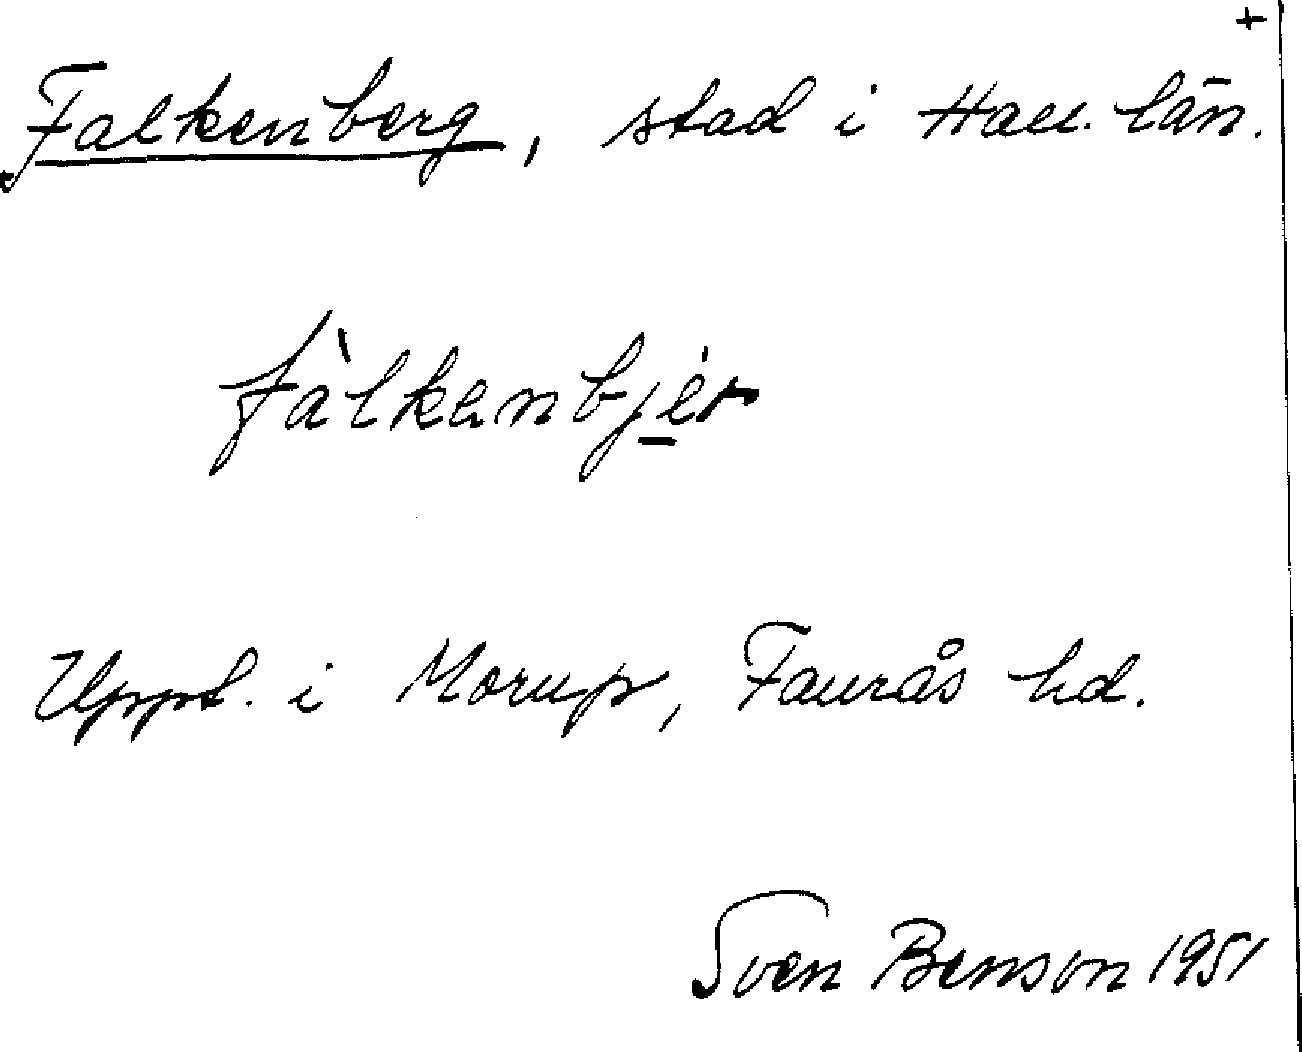 +
Falkenberg, stad i Hall. län.
fàlkenbjer
Uppt. i Morup, Faurås hd.
Sven Benson 1951